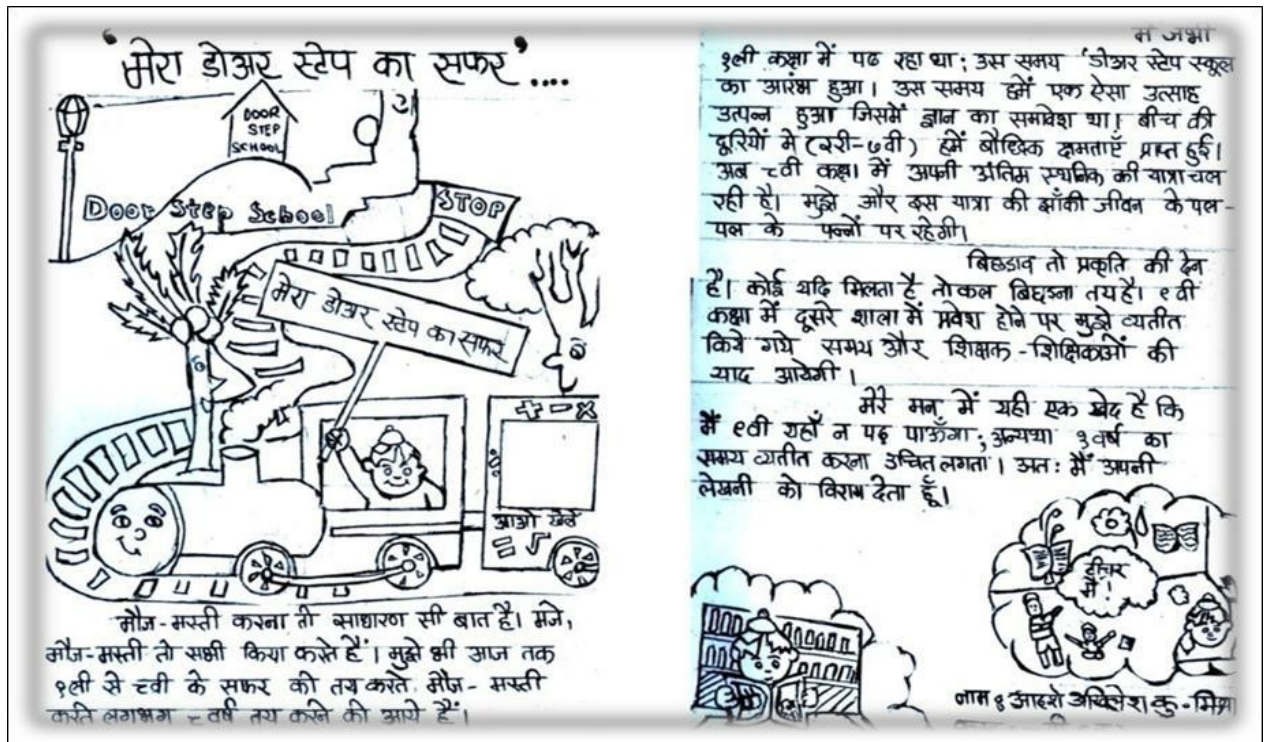 'मेरा डोअर स्टेप का सफर'....
DOOR
STEP
SCHOOL
Door Step School
STOP
मेरा डोअर स्टेप का सफर
+ - ×
आओ खेलें
= √
मौज-मस्ती करना तो साधारण सी बात है। मजे,
मौज-मस्ती तो सभी किया करते हैं। मुझे भी आज तक
१ली से ८वी के सफर को तय करते मौज-मस्ती
करते लगभग ८ वर्ष तय करने को आये हैं।
मैं जभी
१ली कक्षा में पढ रहा था; उस समय 'डोअर स्टेप स्कूल
का आरंभ हुआ। उस समय हमें एक ऐसा उत्साह
उत्पन्न हुआ जिसमें ज्ञान का समावेश था। बीच की
दूरियों मे (२री-७वी) हमें बौध्दिक क्षमताएँ प्राप्त हुई।
अब ८वी कक्षा में अपनी अंतिम स्थनिक की यात्रा चल
रही है। मुझे और इस यात्रा की झाँकी जीवन के पल-
पल के पन्नों पर रहेगी।
बिछडाव तो प्रकृति की देन
है। कोई यदि मिलता है तो कल बिछडना तय है। ९वी
कक्षा में दूसरे शाला में प्रवेश होने पर मुझे व्यतीत
किये गये समय और शिक्षक-शिक्षिकाओं की
याद आयेगी।
मेरे मन में यही एक खेद है कि
मैं ९वी यहाँ न पढ पाऊँगा; अन्यथा १ वर्ष का
समय व्यतीत करना उचित लगता। अतः मैं अपनी
लेखनी को विराम देता हूँ।
टीचर
मैं!
नाम : आदर्श अखिलेश कु-मिश्रा